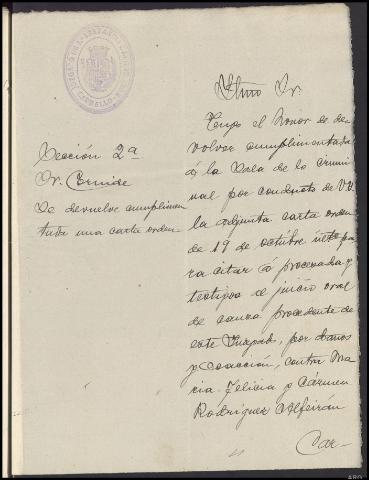 Sección 2ª
Sr. Cornide
Se devuelve cumplimen
tada una carta orden
Iltmo Sr.
Tengo el honor de de
volver cumplimentada
á la Sala de lo crimi
nal por conducto de V.I.
la adjunta carta orden
de 19 de octubre último pa
ra citar á procesadas y
testigos al juicio oral
de causa procedente de
este Juzgado, por daños
y coacción, contra Ma
ria Felicia y Cármen
Rodriguez Alfeirán
Car-